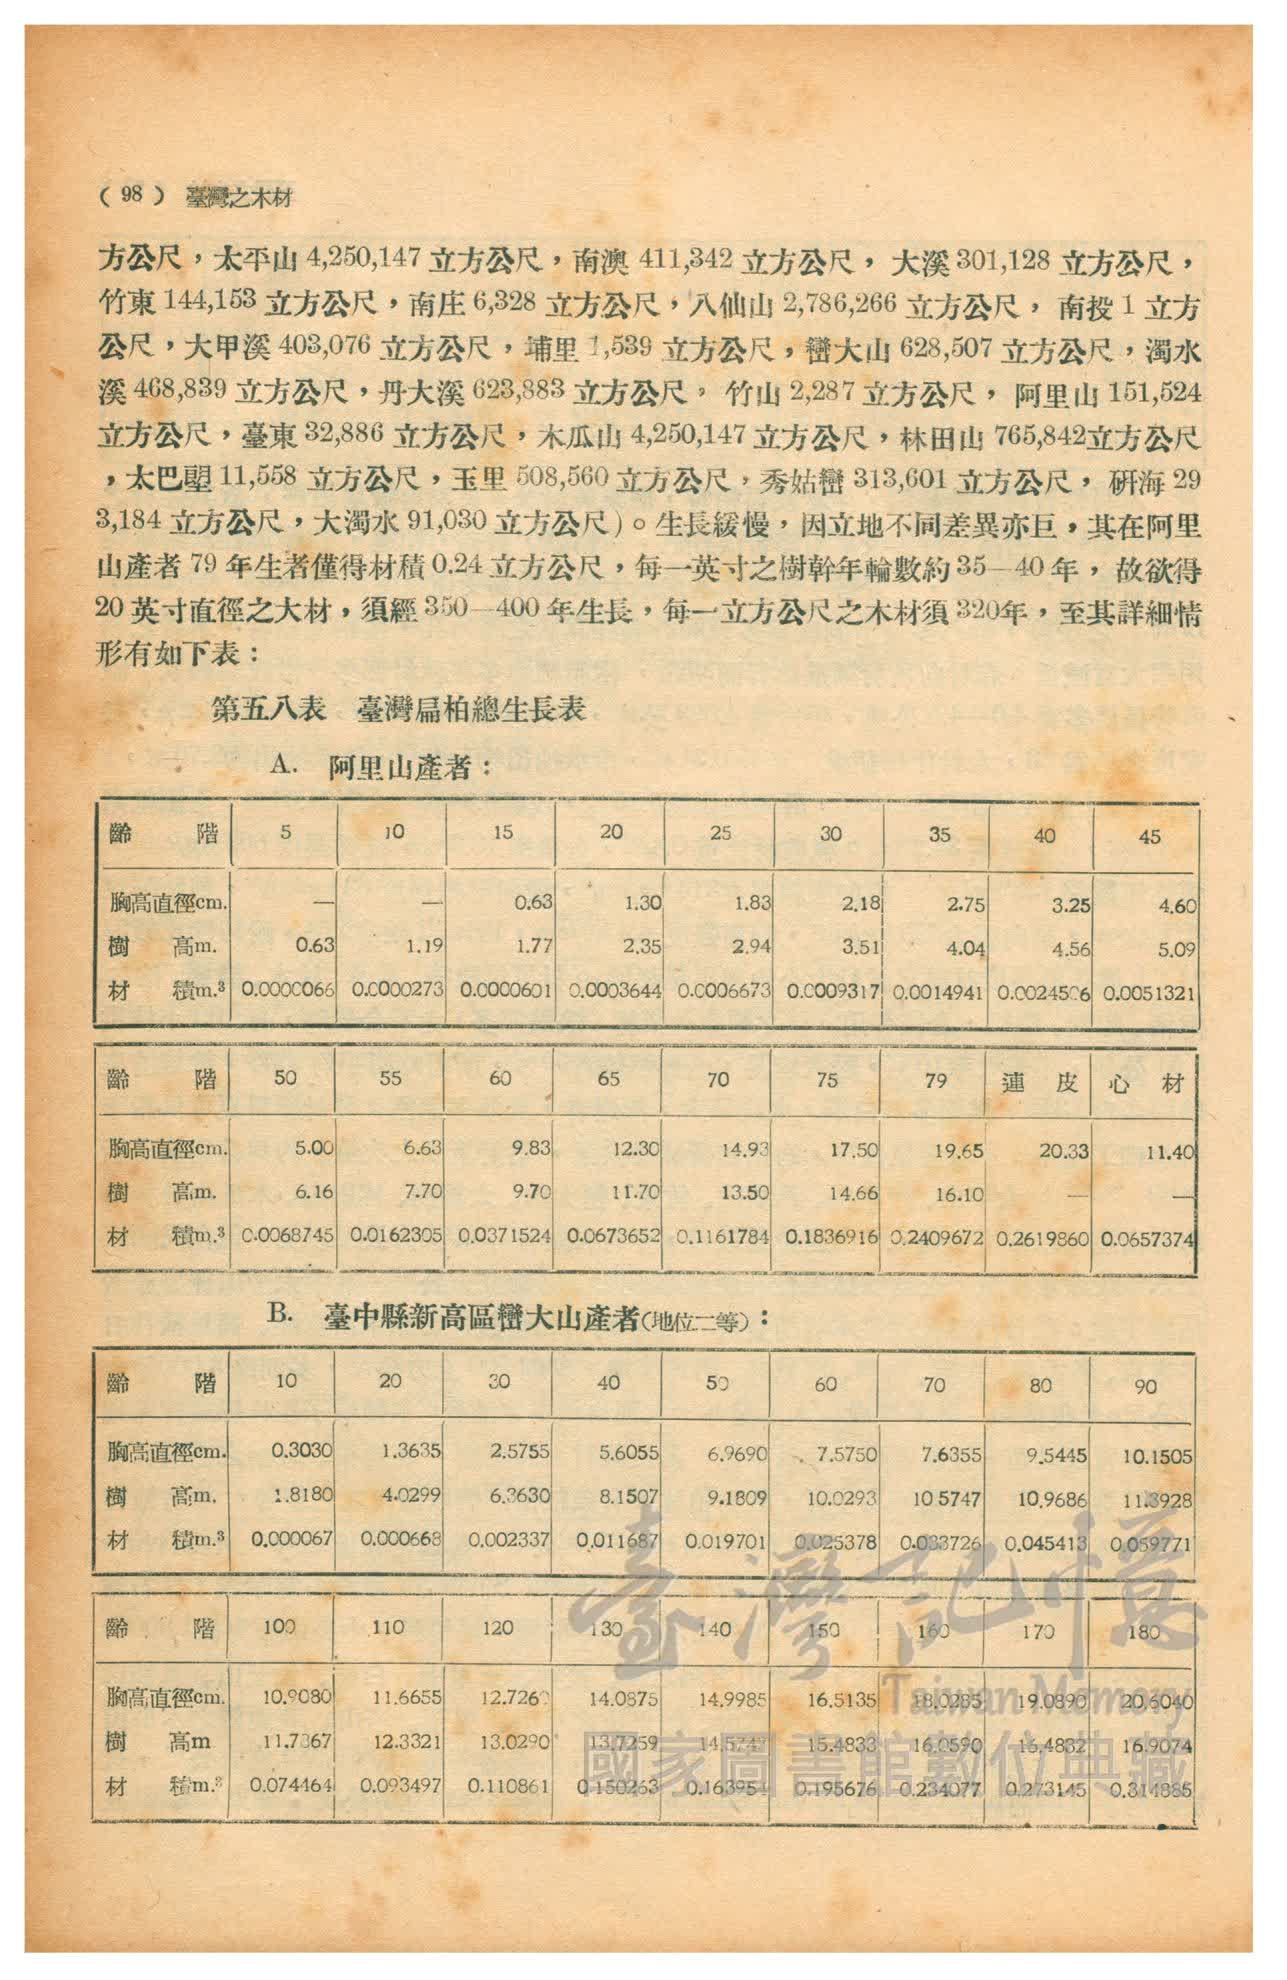 ( 98 ) 臺灣之木材
方公尺，太平山 4,250,147 立方公尺，南澳 411,342 立方公尺， 大溪 301,128 立方公尺，
竹東 144,153 立方公尺，南庄 6,328 立方公尺，八仙山 2,786,266 立方公尺， 南投 1 立方
公尺，大甲溪 403,076 立方公尺，埔里 1,539 立方公尺，巒大山 628,507 立方公尺，濁水
溪 468,839 立方公尺，丹大溪 623,883 立方公尺， 竹山 2,287 立方公尺， 阿里山 151,524
立方公尺，臺東 32,886 立方公尺，木瓜山 4,250,147 立方公尺，林田山 765,842立方公尺
，太巴塱 11,558 立方公尺，玉里 508,560 立方公尺，秀姑巒 313,601 立方公尺， 研海 29
3,184 立方公尺，大濁水 91,030 立方公尺)。生長緩慢，因立地不同差異亦巨，其在阿里
山產者 79 年生者僅得材積 0.24 立方公尺，每一英寸之樹幹年輪數約 35—40 年， 故欲得
20 英寸直徑之大材，須經 350—400 年生長，每一立方公尺之木材須 320年，至其詳細情
形有如下表：
第五八表 臺灣扁柏總生長表
A. 阿里山產者：
齡 階 5 10 15 20 25 30 35 40 45
胸高直徑cm. — — 0.63 1.30 1.83 2.18 2.75 3.25 4.60
樹 高m. 0.63 1.19 1.77 2.35 2.94 3.51 4.04 4.56 5.09
材 積m.³ 0.0000066 0.0000273 0.0000601 0.0003644 0.0006673 0.0009317 0.0014941 0.0051321
齡 階 50 55 60 65 70 75 79 連 皮 心 材
胸高直徑cm. 5.00 6.63 9.83 12.30 14.93 17.50 19.65 20.33 11.40
樹 高m. 6.16 7.70 9.70 11.70 13.50 14.66 16.10 — —
材 積m.³ 0.0068745 0.0162305 0.0371524 0.0673652 0.1161784 0.1836916 0.2409672 0.2619860 0.0657374
B. 臺中縣新高區巒大山產者(地位二等)：
齡 階 10 20 30 40 50 60 70 80 90
胸高直徑cm. 0.3030 1.3635 2.5755 5.6055 6.9690 7.5750 7.6355 9.5445 10.1505
樹 高m. 1.8180 4.0299 6.3630 8.1507 9.1809 10.0293 10 5747 10.9686 11.3928
材 積m.³ 0.000067 0.000668 0.002337 0.011687 0.019701 0.025378 0.033726 0.045413 0.059771
齡 階 100 110 120 130 140 150 160 170 180
胸高直徑cm. 10.9080 11.6655 12.7260 14.0875 14.9985 16.5135 18.0285 19.0890 20.6040
樹 高m 11.7867 12.3321 13.0290 13.7259 15.4833 16.0590 16.4832 16.9074
材 積m.³ 0.074464 0.093497 0.110861 0.150263 0.163954 0.195676 0.234077 0.273145 0.314885
臺灣記憶
Taiwan Memory
國家圖書館數位典藏